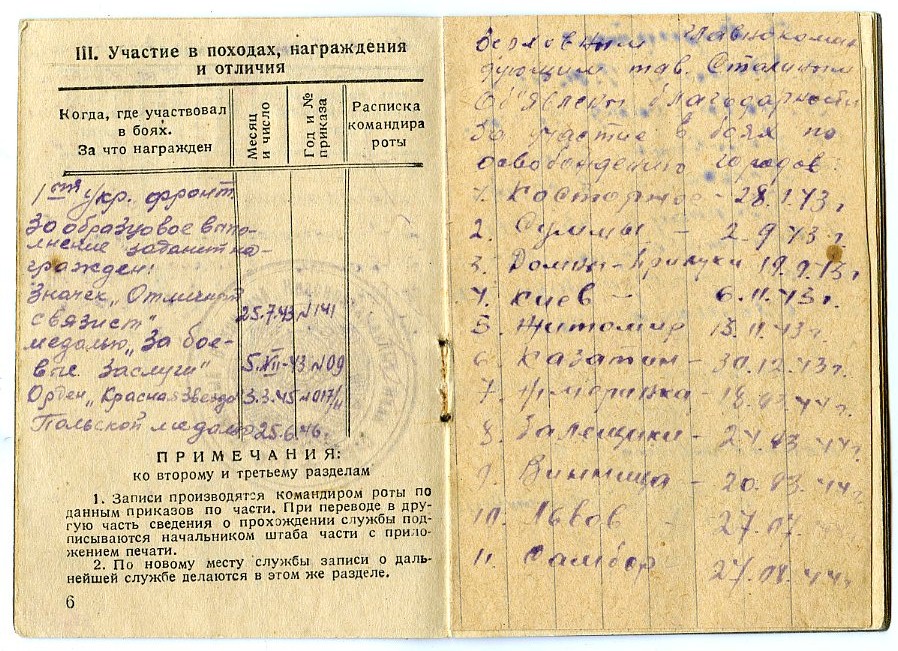 III. Участие в походах, награждения
и отличия
Когда, где участвовал
в боях.
За что награжден
Месяц
и число
Год и №
приказа
Расписка
командира
роты
1ый Укр. фронт
За образцовое выпо-
лнение задания на-
гражден:
Значек „Отличный
связист" 25.7.43 N 141
медалью „За бое-
вые Заслуги" 5.XII-43 N 09
Орден „Красная Звезда 3.3.45 N 017/н
Польской медалью 25.6.46г.
ПРИМЕЧАНИЯ:
ко второму и третьему разделам
1. Записи производятся командиром роты по
данным приказов по части. При переводе в дру-
гую часть сведения о прохождении службы под-
писываются начальником штаба части с прило-
жением печати.
2. По новому месту службы записи о даль-
нейшей службе делаются в этом же разделе.
6
Верховным Главнокоман
дующим тов. Сталиным
Об'явлены благодарности
За участие в боях по
освобождению городов:
1. Касторное - 28.1.43г
2. Суммы - 2.9.43г.
3. Ромны-Прилуки 19.9.43г
4. Киев - 6.11.43г.
5. Житомир 13.11.43г.
6. Казатин - 30.12.43г.
7. Жмеринка - 18.03.44г.
8. Залещики - 24.03.44г.
9. Винница - 20.03.44г
10. Львов - 27.07.
11. Самбор 27.08.44г